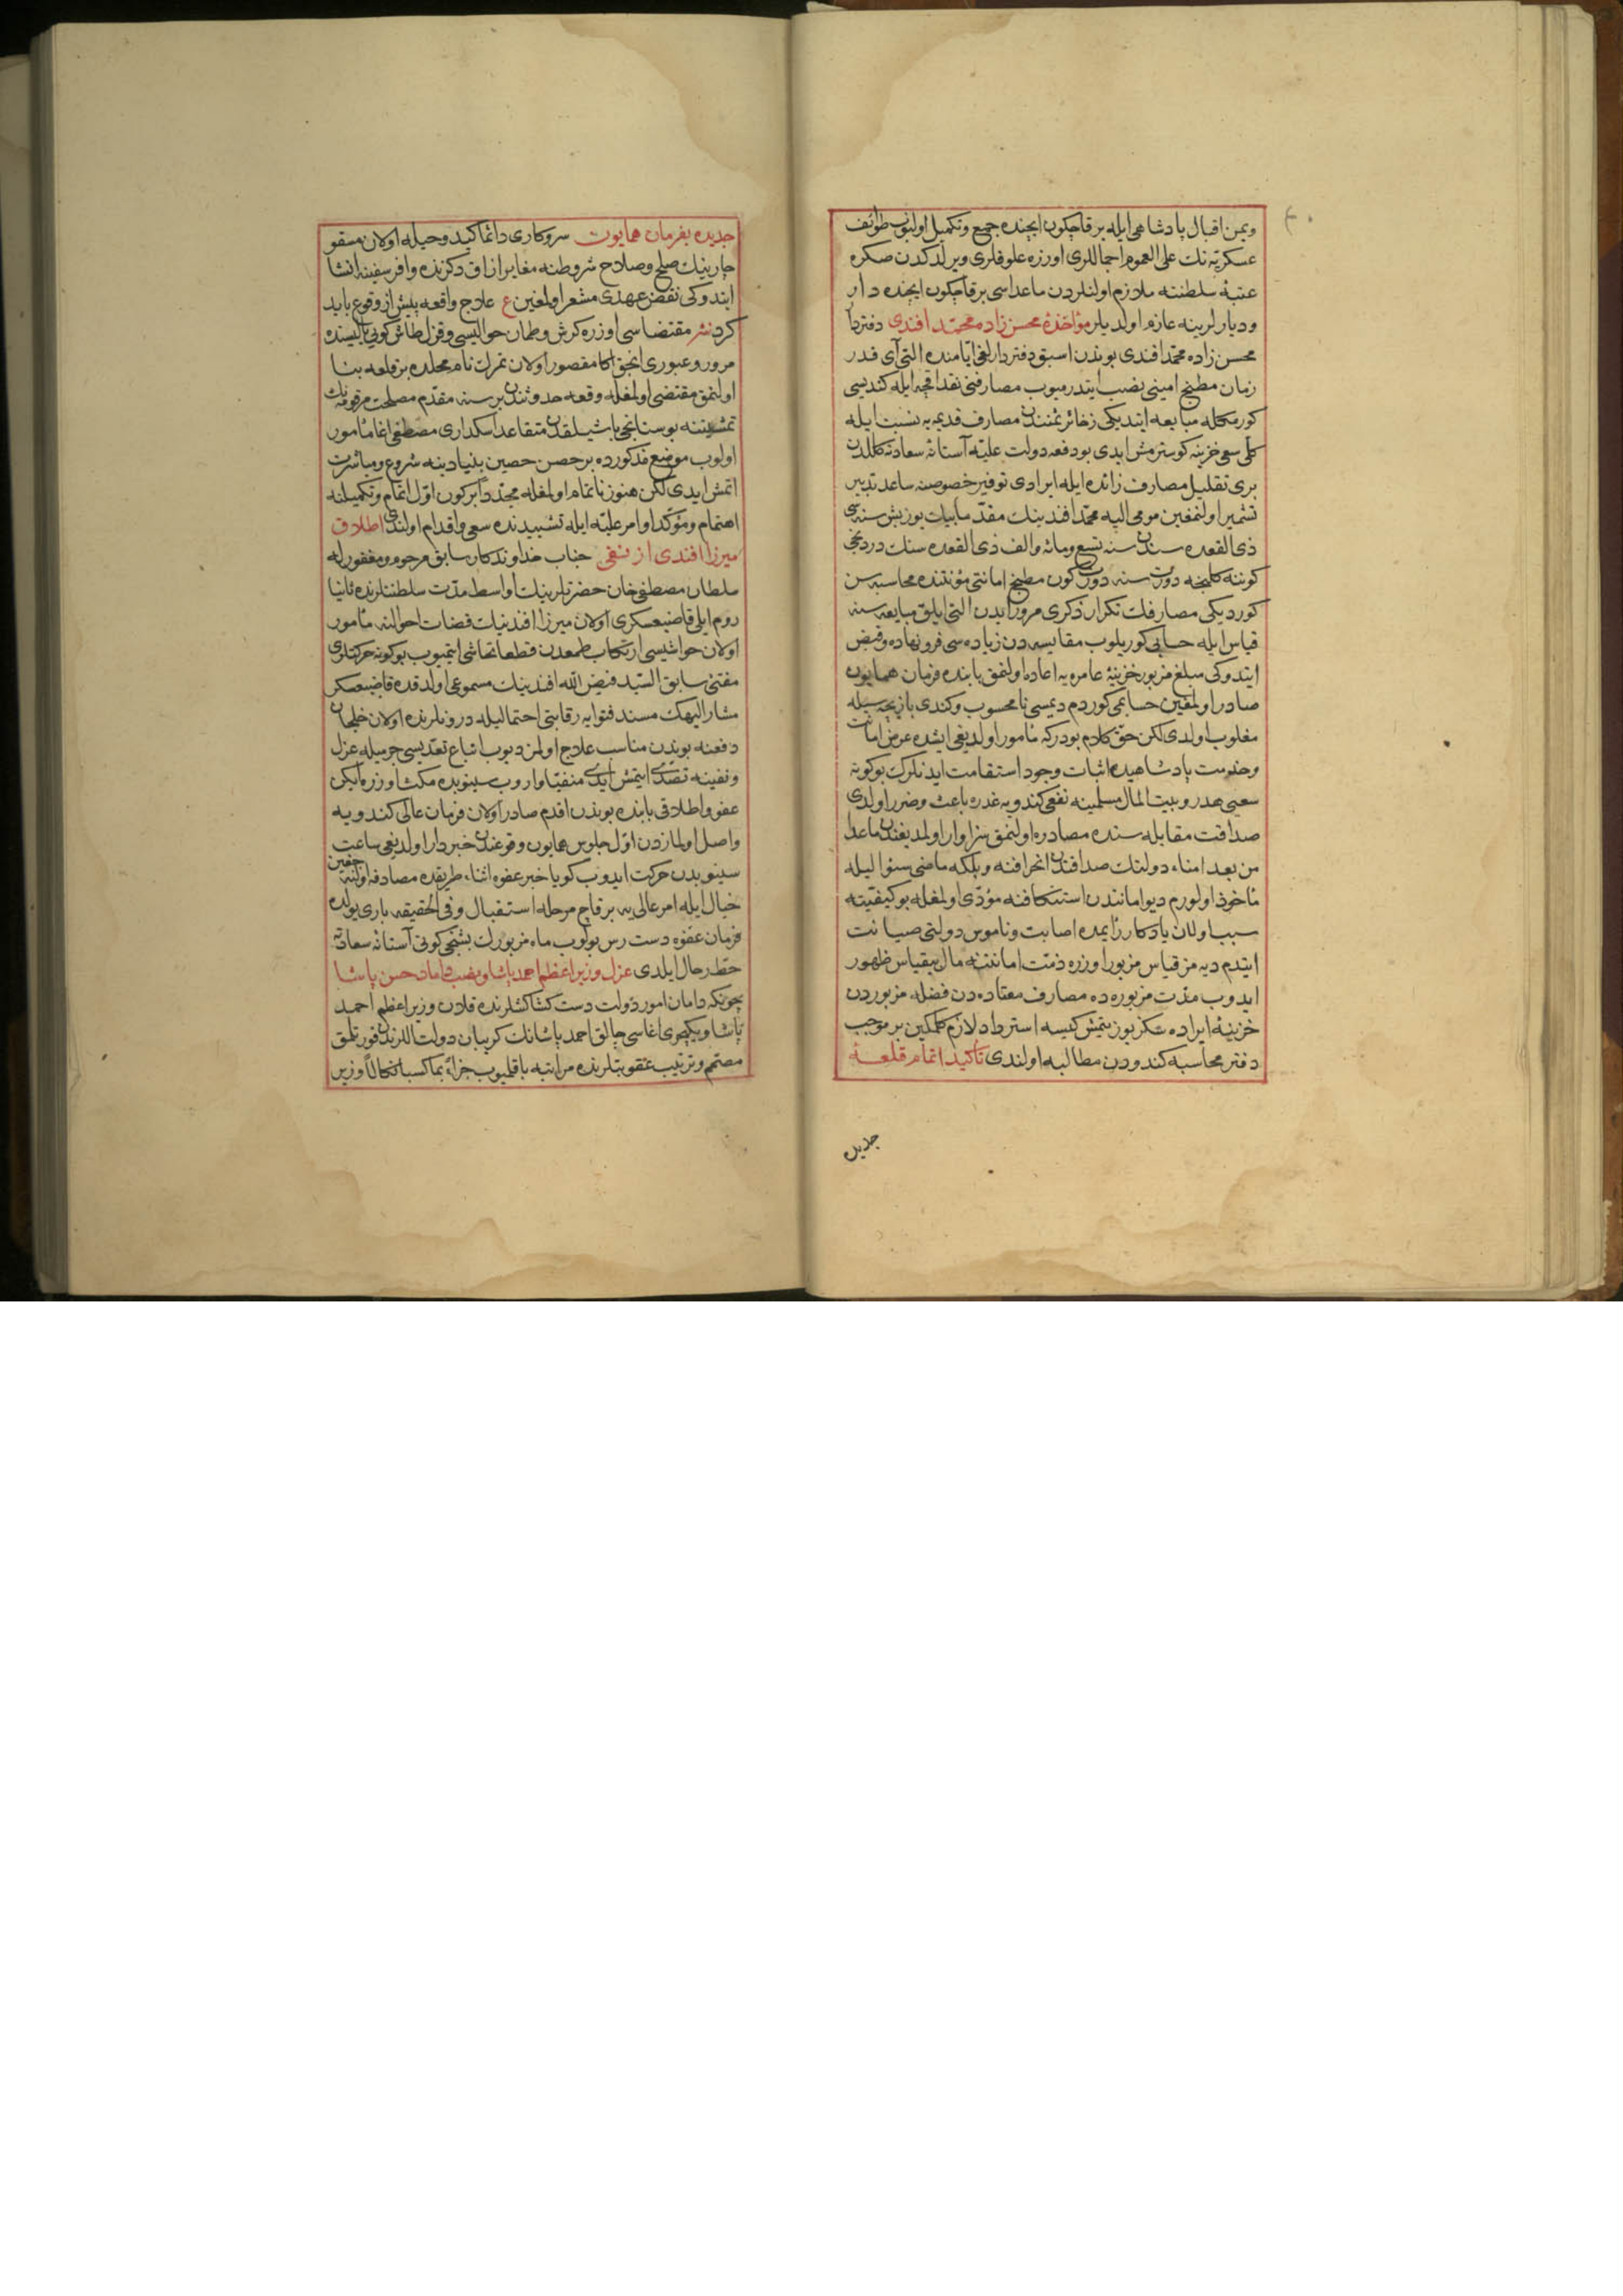 ويمن اقبال پادشاهی ايله برقاچ كون ايچنده جمع وتكميل اولنوب طوائف
عسكريه نك علی العموم اجماللری اوزره علوفلری ويرلدكدن صكره
عتبۀ سلطنته ملازم اولنلردن ماعداسی برقاچ كون ايچنده دار
وديارلرينه عازم اولديلر مؤاخذۀ محسن زاده محمد افندی دفتردار
محسن زاده محمد افندی بوندن اسبق دفتردارلغی ايامنده التی آی قدر
زمان مطبخ امينی نصب ايتدرميوب مصارفنی نقد اقچه ايله كنديسی
كورمكله مبايعه ايتديكی ذخائر ثمننك مصارف قديمه يه نسبت ايله
كلی سعی خزينه كوسترمش ايدی بو دفعه دولت عليه آستانۀ سعادته كلدن
بری تقليل مصارف زائده ايله ايرادی توفير خصوصنه ساعد تدبير
تشمير اولنمغين مومی اليه محمد افندينك مقدما بيك يوز بش سنه سی
ذی القعده سندن سنه تسع ومائه والف ذی القعده سنك دردنجی
كوننه كلنجه دورت سنه دورت كون مطبخ امانتی مؤنتنده محاسبه سن
كورديكی مصارفك تكرار ذكری مرور ايدن التی ايلق مبايعه سنه
قياس ايله حسابی كوريلوب مقايسه دن زياده سی فرونهاده وقبض
ايتدوكی مبلغ مزبور خزينۀ عامره يه اعاده اولنمق بابنده فرمان همايون
صادر اولمغين حسابمی كوردم ديمسی نامحسوب وكندی بازيچه سيله
مغلوب اولدی لكن حق كلام بودركه مأمور اولديغی ايشده عرض امانت
وخدمت پادشاهيده اثبات وجود استقامت ايدنلرك بوكونه
سعيی هدر وبيت المال مسلمينه نفعی كندويه غدره باعث وضرر اولدی
صداقت مقابله سنده مصادره اولنمق سزاوار اولمديغندن ماعدا
من بعد امناء دولتك صداقتدن انحرافنه وبلكه ماضی سنوا ليله
مأخوذ اولورم ديو امانتدن استنكافنه مؤدی اولمغله بو كيفيته
سبب اولان يادكار زائيده اصابت وناموس دولتی صيانت
ايتدم ديه مز قياس مزبور اوزره ذمت امانتنه مال بيقياس ظهور
ايدوب مدت مزبوره ده مصارف معتاده دن فضله مزبوردن
خزينۀ ايراده سكز يوز يتمش كيسه استرداد لازم كلمكين بر موجب
دفتر محاسبه كندودن مطالبه اولندی تأكيد اتمام قلعۀ
جديده
جديده بفرمان همايون سروكاری دائما كيد وحيله اولان مسقو
چارينك صلح وصلاح شروطنه مغاير ازاق دكزنده وافر سفينه انشا
ايتدوكی نقض عهدی مشعر اولمغين ع علاج واقعه پيش از وقوع بايد
كرد نثر مقتضاسی اوزره كرش وطمان حواليسی وقزل طاش كويی ياليسنده
مرور وعبوری انجق اكا مقصور اولان تمرك نام محلده بر قلعه بنا
اولنمق مقتضی اولمغله وقعه حدوثندن بر سنه مقدم مصلحت مرقومه نك
تمشيتنه بوستانجی باشيلقدن متقاعد اسكداری مصطفی اغا مأمور
اولوب موضع مذكورده بر حصن حصين بنيادينه شروع ومباشرت
اتمش ايدی لكن هنوز ناتمام اولمغله مجددا بر كون اول اتمام وتكميلنه
اهتمام ومؤكد اوامر عليه ايله تشييدنده سعی واقدام اولندی اطلاق
ميرزا افندی از نفی جناب خداوندكار سابق مرحوم ومغفور له
سلطان مصطفی خان حضرتلرينك اواسط مدت سلطنتلرنده ثانيا
روم ايلی قاضيعسكری اولان ميرزا افندينك قضات احوالنه مأمور
اولان حواشيسی ارتكاب طمعدن قطعا تحاشی ايتميوب بوكونه حركتلری
مفتئ سابق السيد فيض الله افندينك مسموعی اولدقده قاضيعسكر
مشار اليهك مسند فتوايه رقابتی احتماليله درونلرنده اولان خلجان
دفعنه بوندن مناسب علاج اولمز ديوب اتباع تعديسی جرميله عزل
ونفينه تصدی ايتمش ايدی منفيا واروب سينوبده مكث اوزره ايكن
عفو واطلاقی بابنده بوندن اقدم صادر اولان فرمان عالی كندويه
واصل اولمازدن اول جلوس همايون وقوعندن خبردار اولديغی ساعت
سينوبدن حركت ايدوب كويا خبر عفوه اثناء طريقده مصادفه اولنه جغين
خيال ايله امر عالی يه برقاچ مرحله استقبال وفی الحقيقه باری يولده
فرمان عفوه دست رس بولوب ماه مزبورك بشنجی كونی آستانۀ سعادته
حط رحال ايلدی عزل وزير اعظم احمد پاشا ونصب داماد حسن پاشا
چونكه دامان امور دولت دست كشاكشلرنده قلان وزير اعظم احمد
پاشا ويكيچری اغاسی چالق احمد پاشانك كريبان دولت اللرندن قورتلمق
مصمم وترتيب عقوبتلرنده مراتبه باقلميوب جزاء بما كسبا نكالا وزير